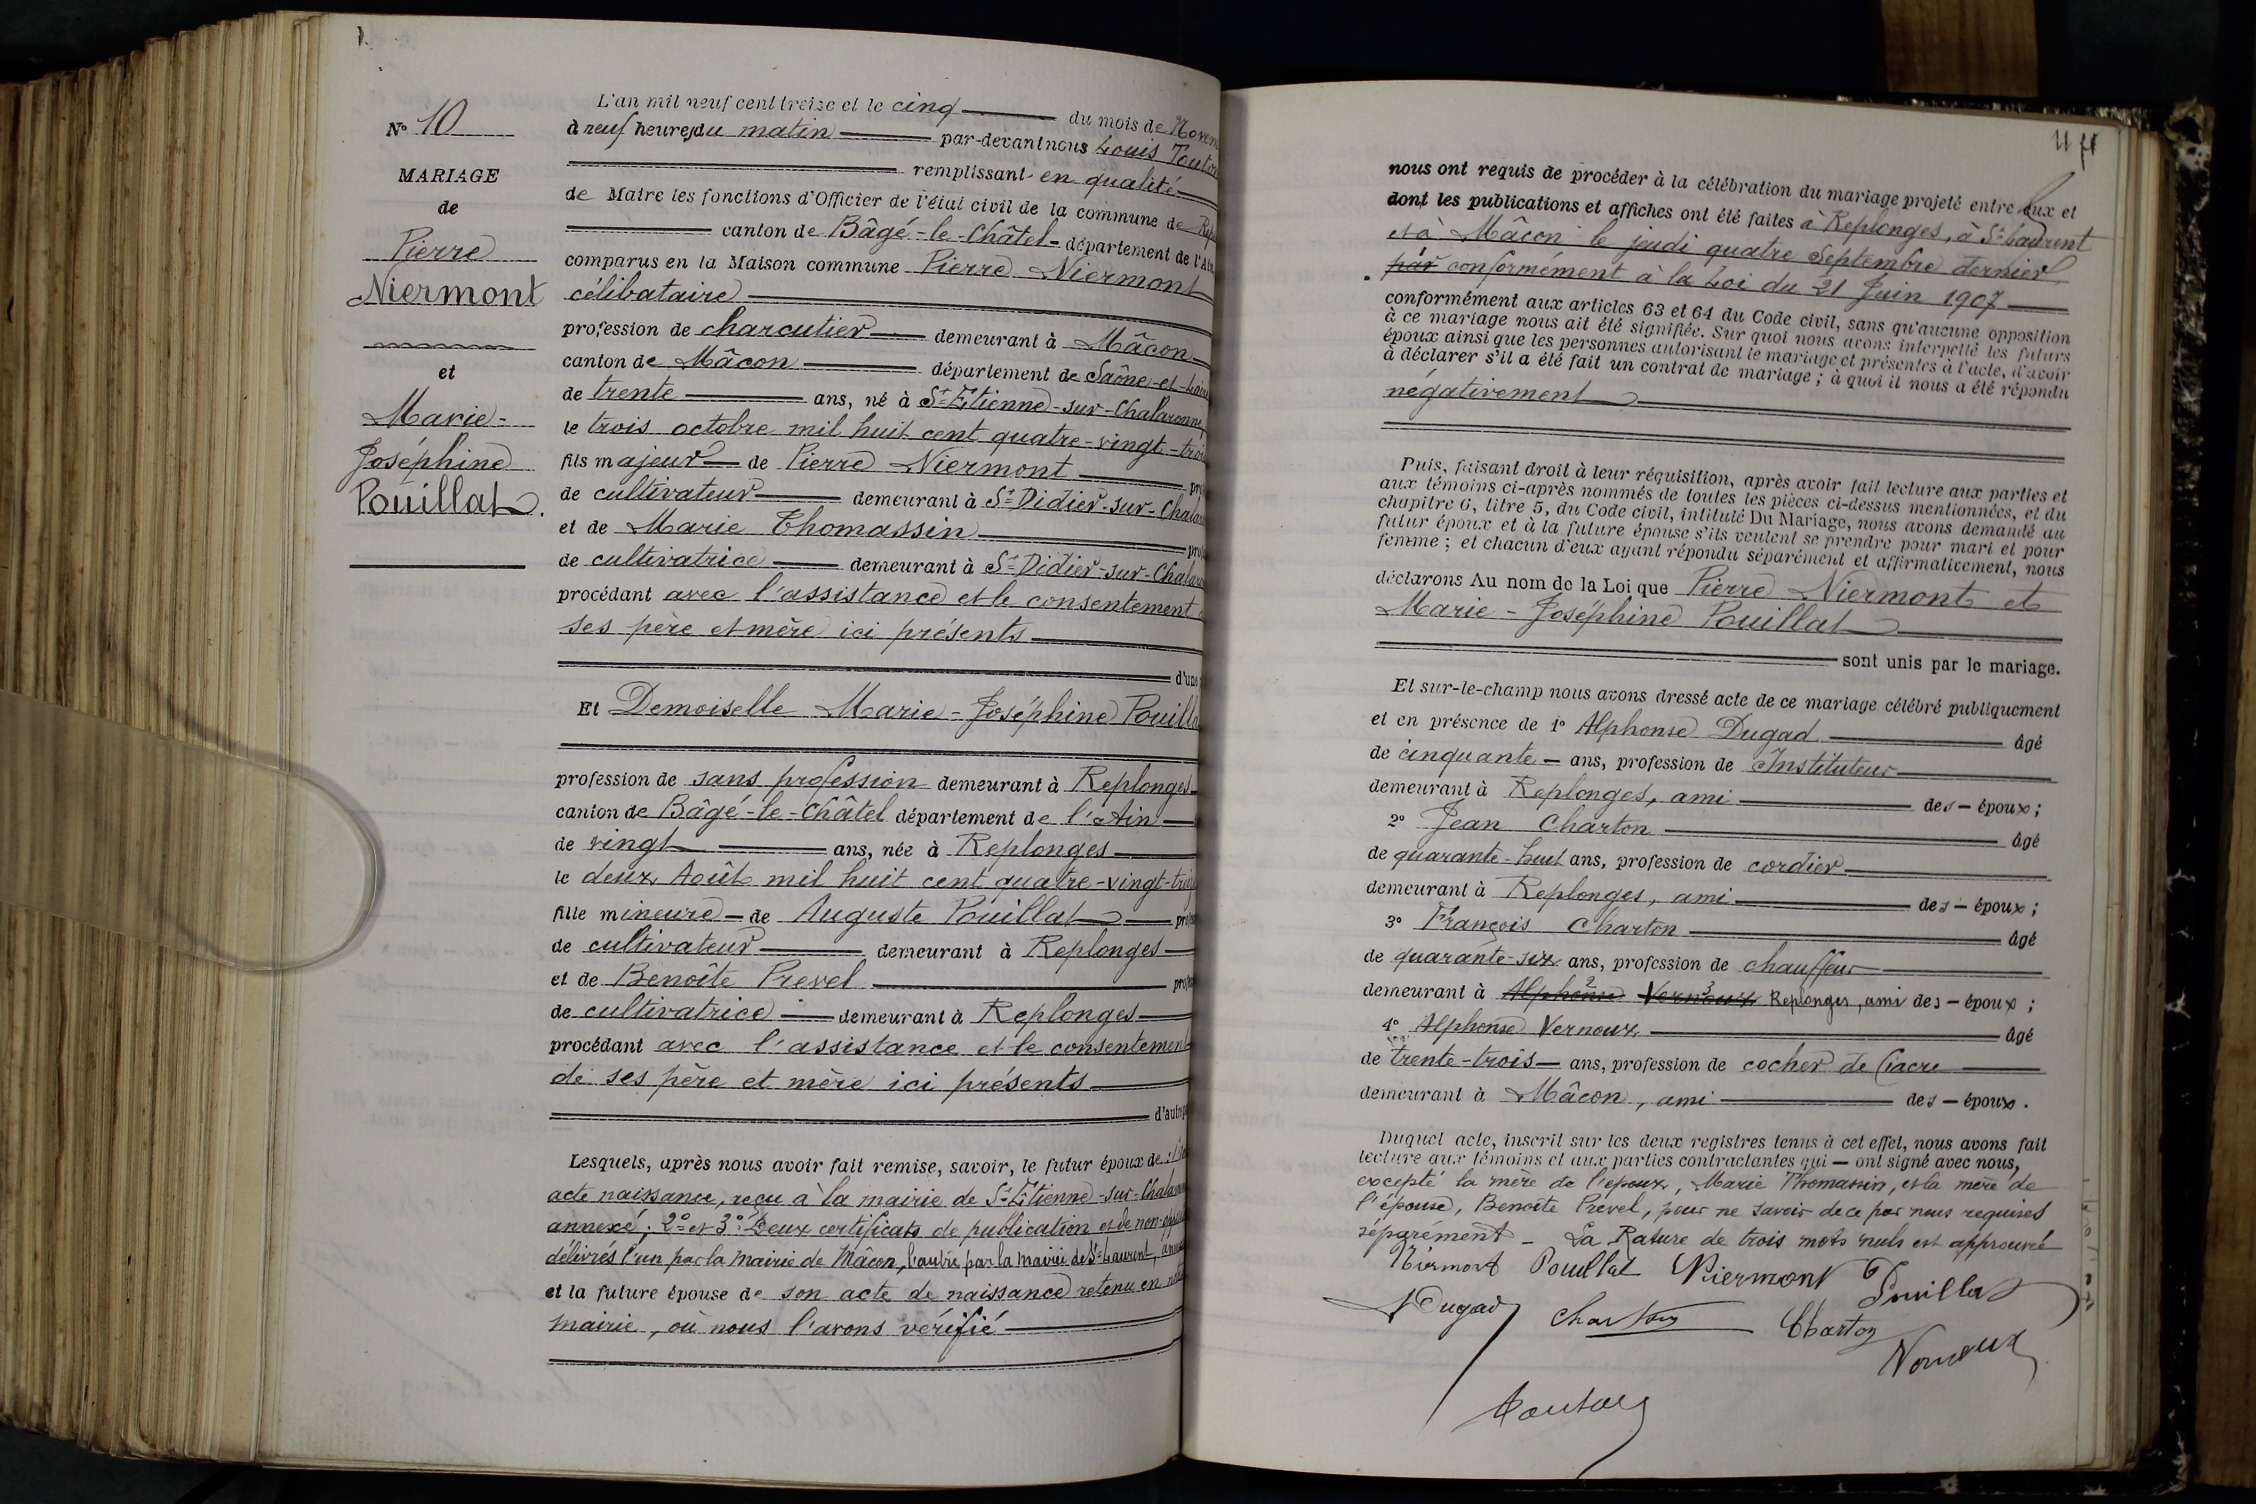 N° 10
MARIAGE
de
Pierre
Niermont
et
Marie-
Joséphine
Pouillat.
L'an mil neuf cent treize et le cinq du mois de Novem
à neuf heures du matin par-devant nous Louis
remplissant en qualité
de Maire les fonctions d'Officier de l'état civil de la commune de Rep
canton de Bâgé-le-Châtel département de l'Ain
comparus en la Maison commune Pierre Niermont
célibataire
profession de charcutier demeurant à Mâcon
canton de Mâcon département de Saône-et-Loire
de trente ans, né à St-Etienne-sur-Chalaronne
le trois octobre mil huit cent quatre-vingt-trois
fils majeur de Pierre Niermont pro
de cultivateur demeurant à St-Didier-sur-Chalar
et de Marie Thomassin pro
de cultivatrice demeurant à St-Didier-sur-Chalar
procédant avec l'assistance et le consentement
ses père et mère ici présents
d'une
Et Demoiselle Marie-Joséphine Pouilla
profession de sans profession demeurant à Replonges
canton de Bâgé-le-Châtel département de l'Ain
de vingt ans, née à Replonges
le deux Août mil huit cent quatre-vingt-treize
fille mineure de Auguste Pouillat prof
de cultivateur demeurant à Replonges
et de Benoîte Prevel prof
de cultivatrice demeurant à Replonges
procédant avec l'assistance et le consentement
de ses père et mère ici présents
d'autre
Lesquels, après nous avoir fait remise, savoir, le futur époux de :
acte naissance, reçu à la mairie de St-Etienne-sur-Chalaronne
annexé ; 2° et 3° Deux certificats de publication et de non-oppos
délivrés l'un par la Mairie de Mâcon, l'autre par la Mairie de St-Laurent, annex
et la future épouse de son acte de naissance retenu en notre
mairie, où nous l'avons vérifié
nous ont requis de procéder à la célébration du mariage projeté entre eux et
dont les publications et affiches ont été faites à Replonges, à St-Laurent
et à Mâcon le jeudi quatre Septembre dernier
par conformément à la Loi du 21 Juin 1907
conformément aux articles 63 et 64 du Code civil, sans qu'aucune opposition
à ce mariage nous ait été signifiée. Sur quoi nous avons interpellé les futurs
époux ainsi que les personnes autorisant le mariage et présentes à l'acte, d'avoir
à déclarer s'il a été fait un contrat de mariage ; à quoi il nous a été répondu
négativement
Puis, faisant droit à leur réquisition, après avoir fait lecture aux parties et
aux témoins ci-après nommés de toutes les pièces ci-dessus mentionnées, et du
chapitre 6, titre 5, du Code civil, intitulé Du Mariage, nous avons demandé au
futur époux et à la future épouse s'ils veulent se prendre pour mari et pour
femme ; et chacun d'eux ayant répondu séparément et affirmativement, nous
déclarons Au nom de la Loi que Pierre Niermont et
Marie-Joséphine Pouillat
sont unis par le mariage.
Et sur-le-champ nous avons dressé acte de ce mariage célébré publiquement
et en présence de 1° Alphonse Dugad âgé
de cinquante ans, profession de Instituteur
demeurant à Replonges, ami des époux ;
2° Jean Charton âgé
de quarante-huit ans, profession de cordier
demeurant à Replonges, ami des époux ;
3° François Charton âgé
de quarante-six ans, profession de chauffeur
demeurant à Alphonse Vernoux Replonges, ami des époux ;
4° Alphonse Vernoux âgé
de trente-trois ans, profession de cocher de fiacre
demeurant à Mâcon, ami des époux.
Duquel acte, inscrit sur les deux registres tenus à cet effet, nous avons fait
lecture aux témoins et aux parties contractantes qui ont signé avec nous,
excepté la mère de l'époux, Marie Thomassin, et la mère de
l'épouse, Benoîte Prevel, pour ne savoir de ce par nous requises
séparément - La Rature de trois mots nuls est approuvée
Niermont Pouillat Niermont Pouillat
Dugad Charton Charton
Vernoux